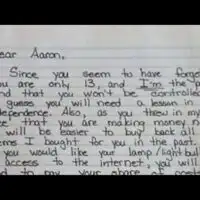 ear Aaron,
Since you seem to have forgo
ou are only 13, and I'm the p
nd that you won't be controlled
guess you will need a lesson in
dependence. Also, as you threw in my
ce that you are making money n
will be easier to buy back all
ems I bought for you in the past.
you would like your lamp/lightbul
access to the internet, you will
d to pay your share of cost